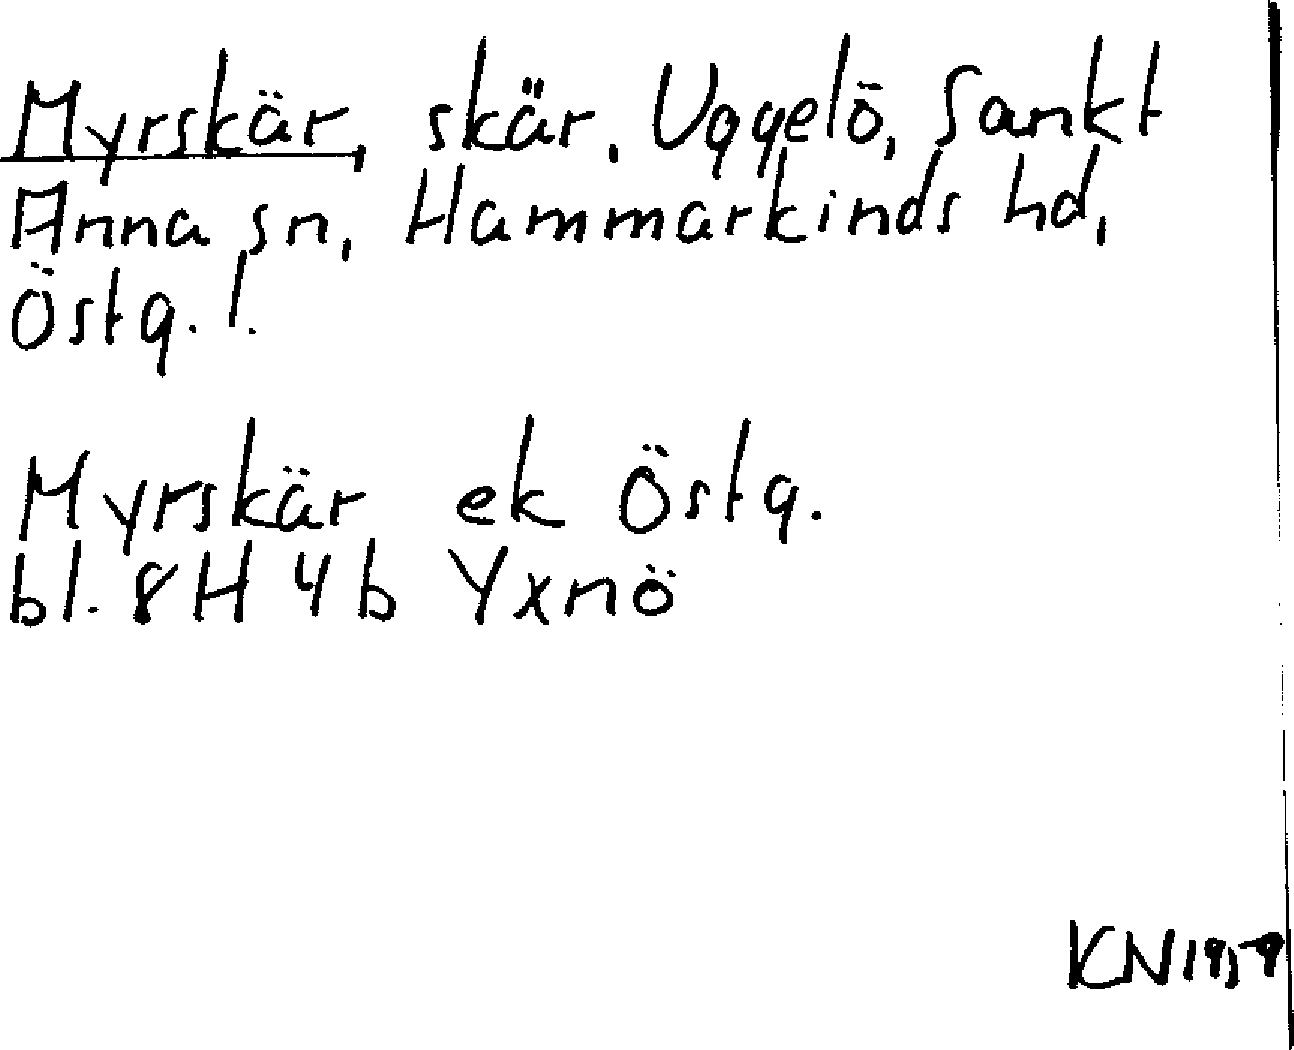 Myrskär, skär. Uggelö, Sankt
Anna sn, Hammarkinds hd,
Östg. l.
Myrskär ek Östg.
bl. 8H 4b Yxnö
KN